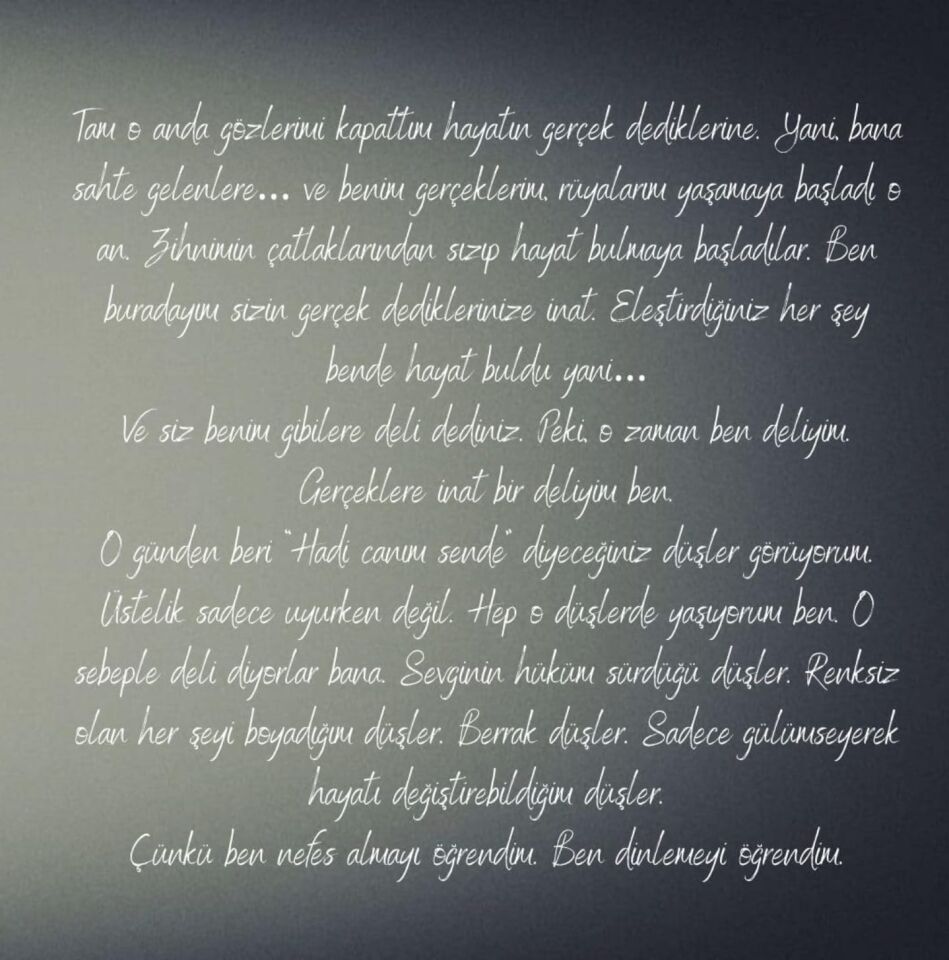 Tam o anda gözlerimi kapattım hayatın gerçek dediklerine. Yani, bana
sahte gelenlere... ve benim gerçeklerim, rüyalarım yaşamaya başladı o
an. Zihnimin çatlaklarından sızıp hayat bulmaya başladılar. Ben
buradayım sizin gerçek dediklerinize inat. Eleştirdiğiniz her şey
bende hayat buldu yani...
Ve siz benim gibilere deli dediniz. Peki, o zaman ben deliyim.
Gerçeklere inat bir deliyim ben.
O günden beri "Hadi canım sende" diyeceğiniz düşler görüyorum.
Üstelik sadece uyurken değil. Hep o düşlerde yaşıyorum ben. O
sebeple deli diyorlar bana. Sevginin hüküm sürdüğü düşler. Renksiz
olan her şeyi boyadığım düşler. Berrak düşler. Sadece gülümseyerek
hayatı değiştirebildiğim düşler.
Çünkü ben nefes almayı öğrendim. Ben dinlemeyi öğrendim.